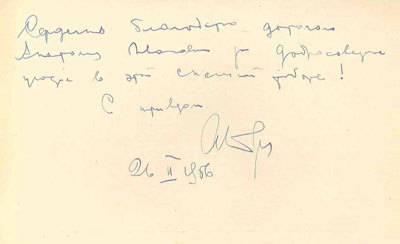 Сердечно благодарю дорогого
Анатолия Ивановича за добросовестн
в этой работе!
С приветом
26 II 1956